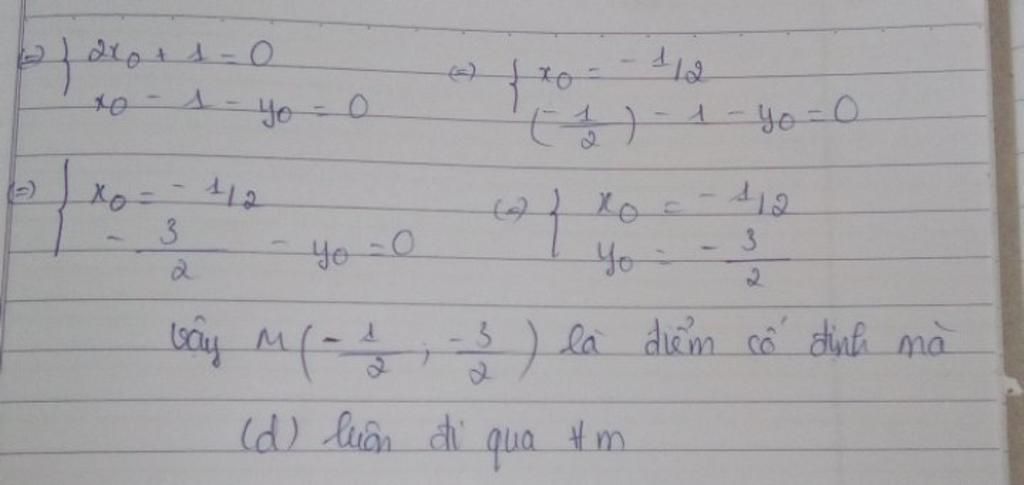 (=) { 2x₀ + 1 = 0
x₀ - 1 - y₀ = 0
(=) { x₀ = -1/2
(-1/2) - 1 - y₀ = 0
(=) { x₀ = -1/2
-3/2 - y₀ = 0
(=) { x₀ = -1/2
y₀ = -3/2
Vậy M(-1/2; -3/2) là điểm cố định mà
(d) luôn đi qua ∀m